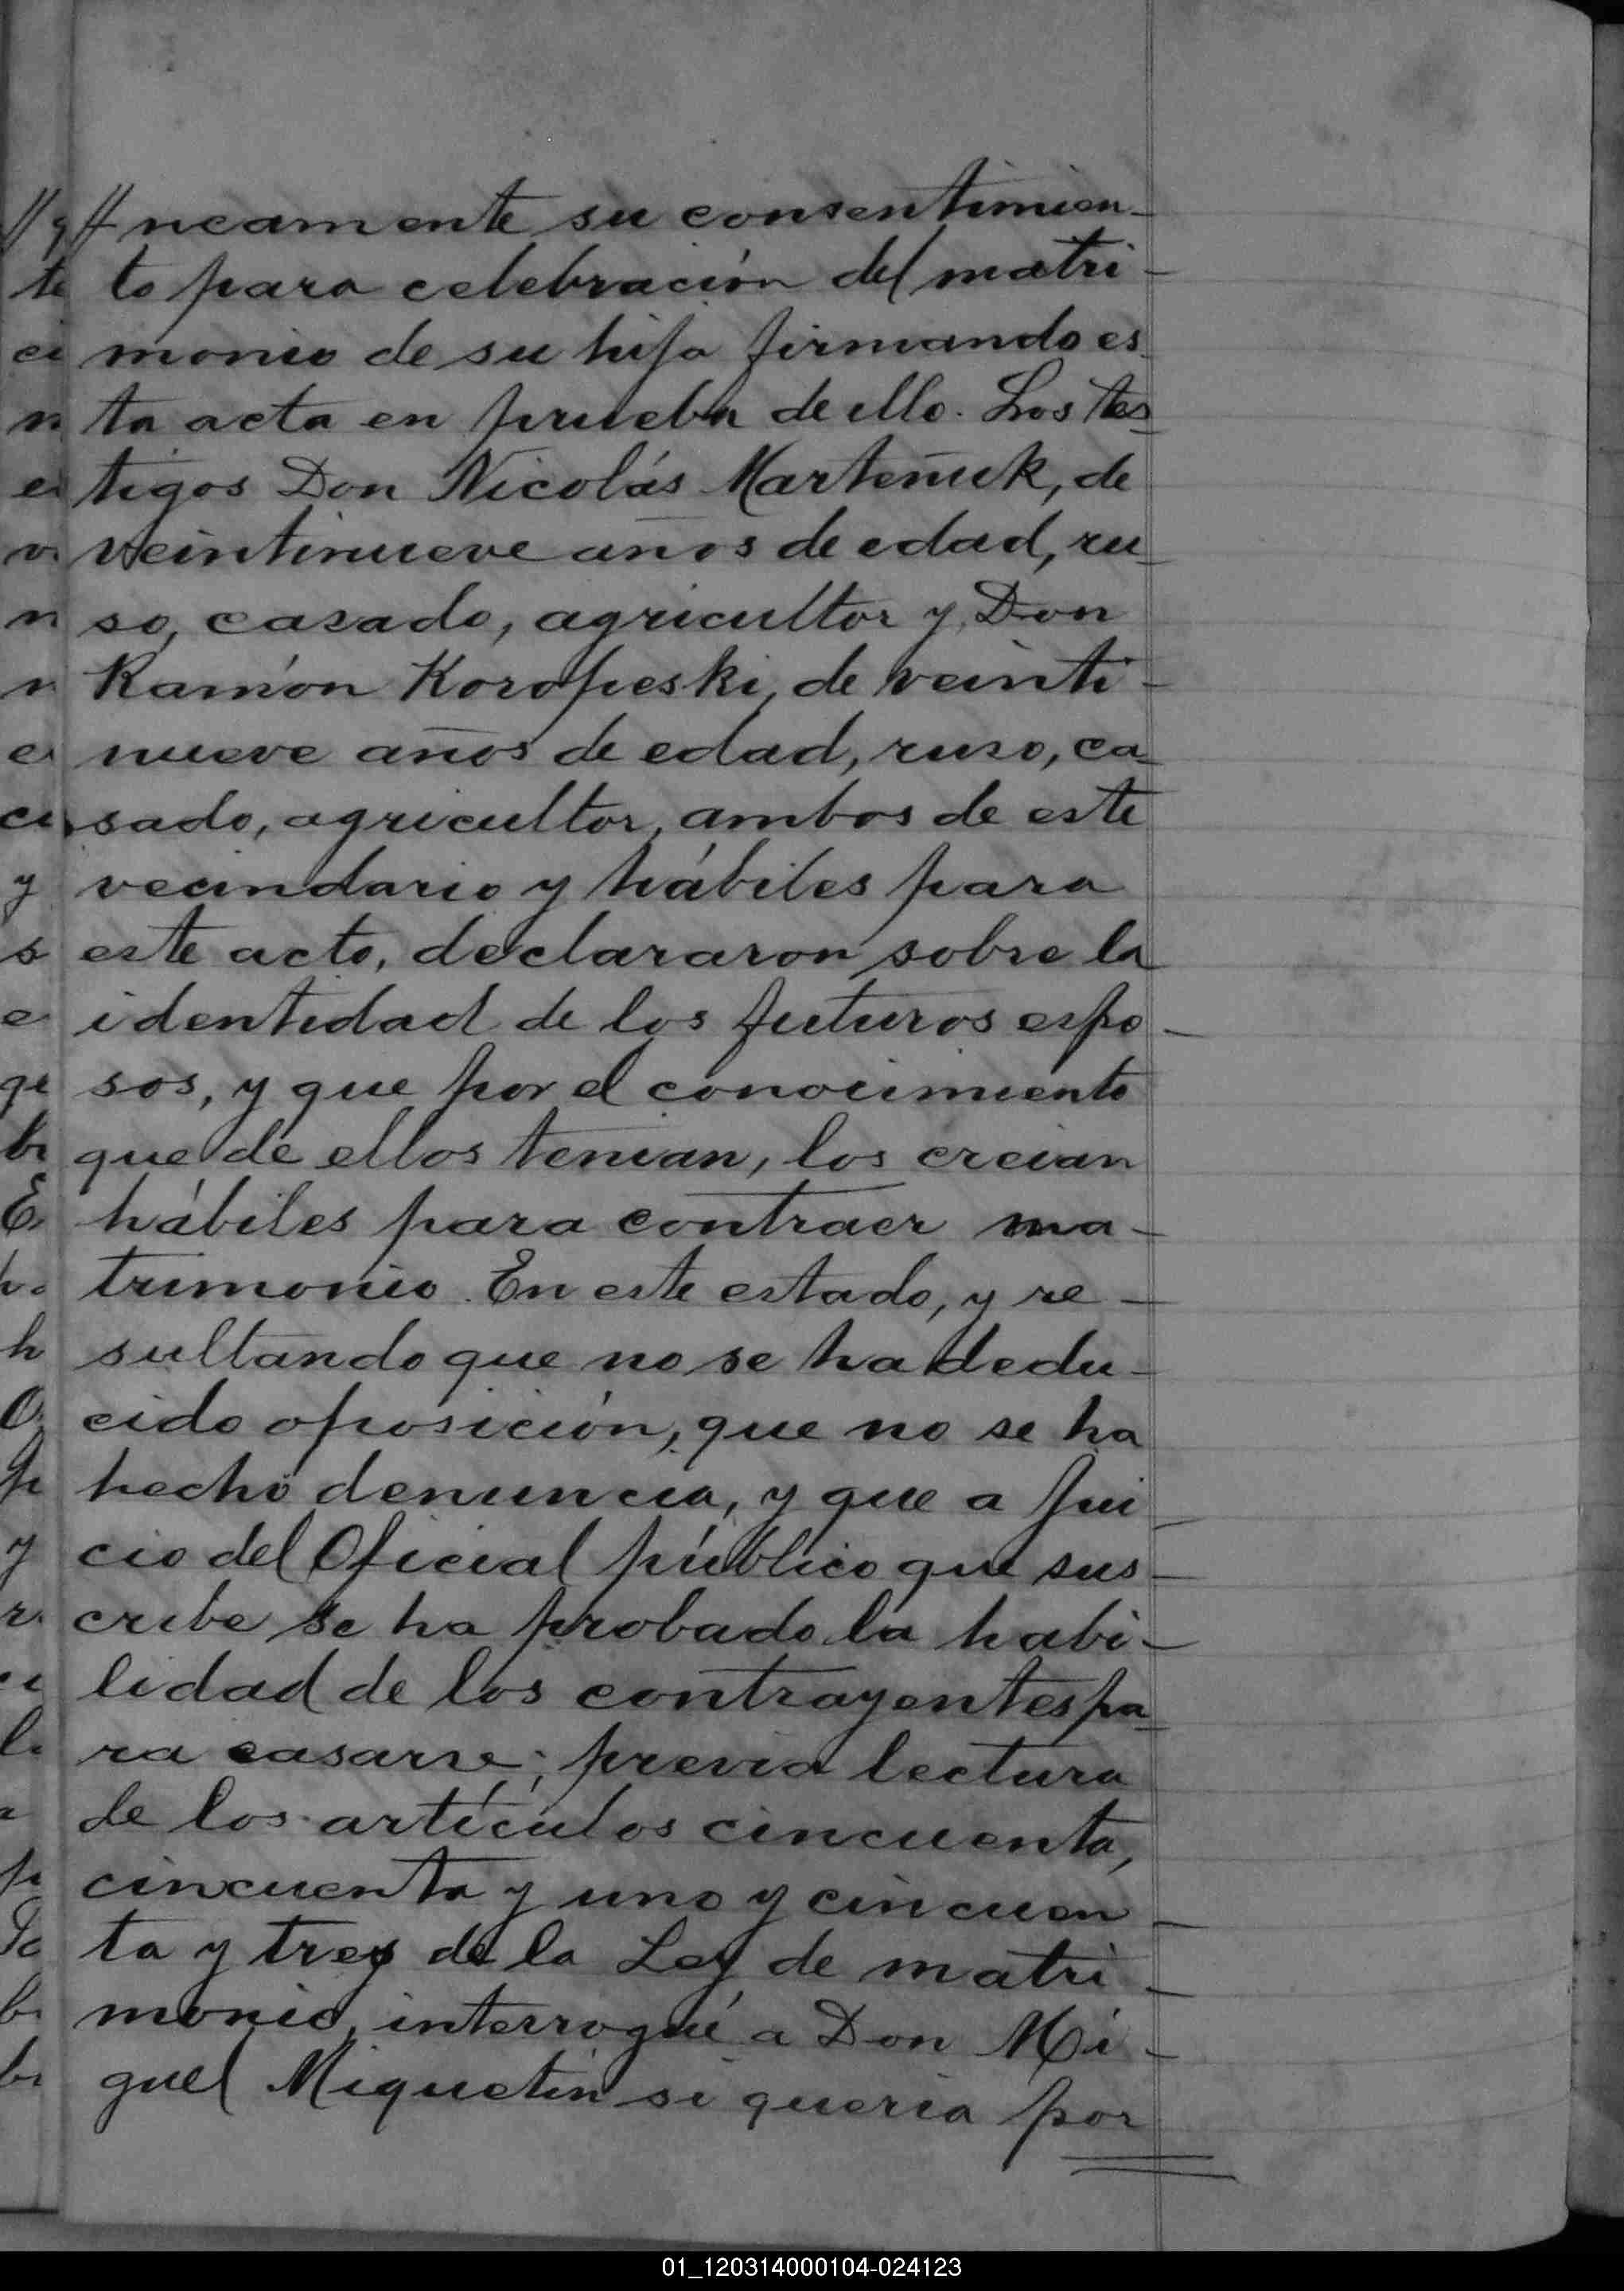 //ncamente su consentimien-
to para celebración del matri-
monio de su hija firmando es-
ta acta en prueba de ello. Los tes-
tigos Don Nicolás Marteñuk, de
veintinueve años de edad, ru-
so, casado, agricultor y Don
Ramón Koropeski, de veinti-
nueve años de edad, ruso, ca-
sado, agricultor, ambos de este
vecindario y hábiles para
este acto, declararon sobre la
identidad de los futuros espo-
sos, y que por el conocimiento
que de ellos tenian, los creian
hábiles para contraer ma-
trimonio. En este estado, y re-
sultando que no se ha dedu-
cido oposición, que no se ha
hecho denuncia, y que a jui-
cio del Oficial público que sus-
cribe se ha probado la habi-
lidad de los contrayentes pa-
ra casarse; previa lectura
de los artículos cincuenta,
cincuenta y uno y cincuen-
ta y tres de la Ley de matri-
monio, interrogué a Don Mi-
guel Miquetin si queria por
01_120314000104-024123